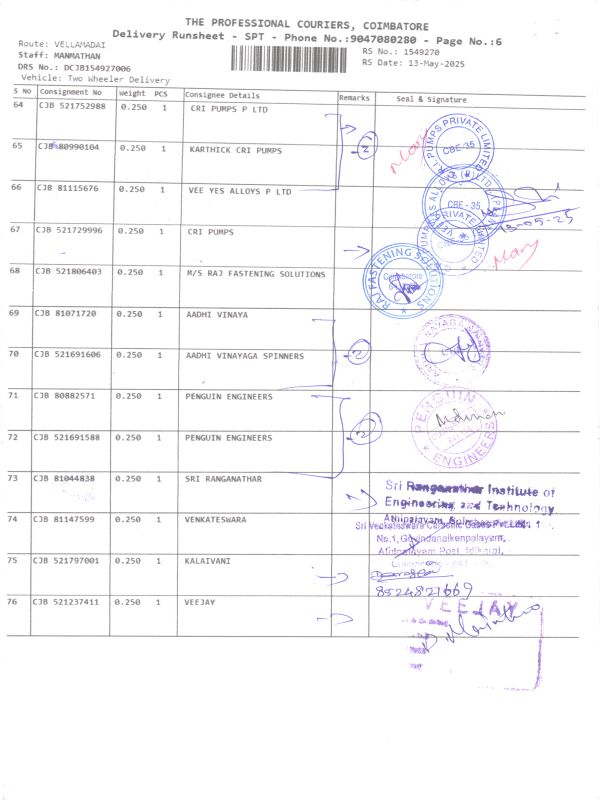 THE PROFESSIONAL COURIERS, COIMBATORE
Delivery Runsheet - SPT - Phone No.:9047080280 - Page No.:6
Route: VELLAMADAI
Staff: MANMATHAN
DRS No.: DCJB154927006
Vehicle: Two Wheeler Delivery
RS No.: 1549270
RS Date: 13-May-2025
S No Consignment No Weight PCS Consignee Details Remarks Seal & Signature
64 CJB 521752988 0.250 1 CRI PUMPS P LTD
65 CJB 80990104 0.250 1 KARTHICK CRI PUMPS
2
PUMPS PRIVATE LIMITED
CBE-35
66 CJB 81115676 0.250 1 VEE YES ALLOYS P LTD
CBE - 35
13-05-25
67 CJB 521729996 0.250 1 CRI PUMPS
68 CJB 521806403 0.250 1 M/S RAJ FASTENING SOLUTIONS
RAJ FASTENING SOLUTIONS
Coimbatore
69 CJB 81071720 0.250 1 AADHI VINAYA
70 CJB 521691606 0.250 1 AADHI VINAYAGA SPINNERS
2
71 CJB 80882571 0.250 1 PENGUIN ENGINEERS
72 CJB 521691588 0.250 1 PENGUIN ENGINEERS
2
PENGUIN ENGINEERS
73 CJB 81044838 0.250 1 SRI RANGANATHAR
Sri Ranganathar Institute of
Engineering and Technology
Athipalayam,
74 CJB 81147599 0.250 1 VENKATESWARA
Sri Venkateswara Carbonic Gases
No.1, Govindanaikenpalayam,
Athipalayam Post, Idikarai,
75 CJB 521797001 0.250 1 KALAIVANI
8524821669
76 CJB 521237411 0.250 1 VEEJAY
VEEJAY